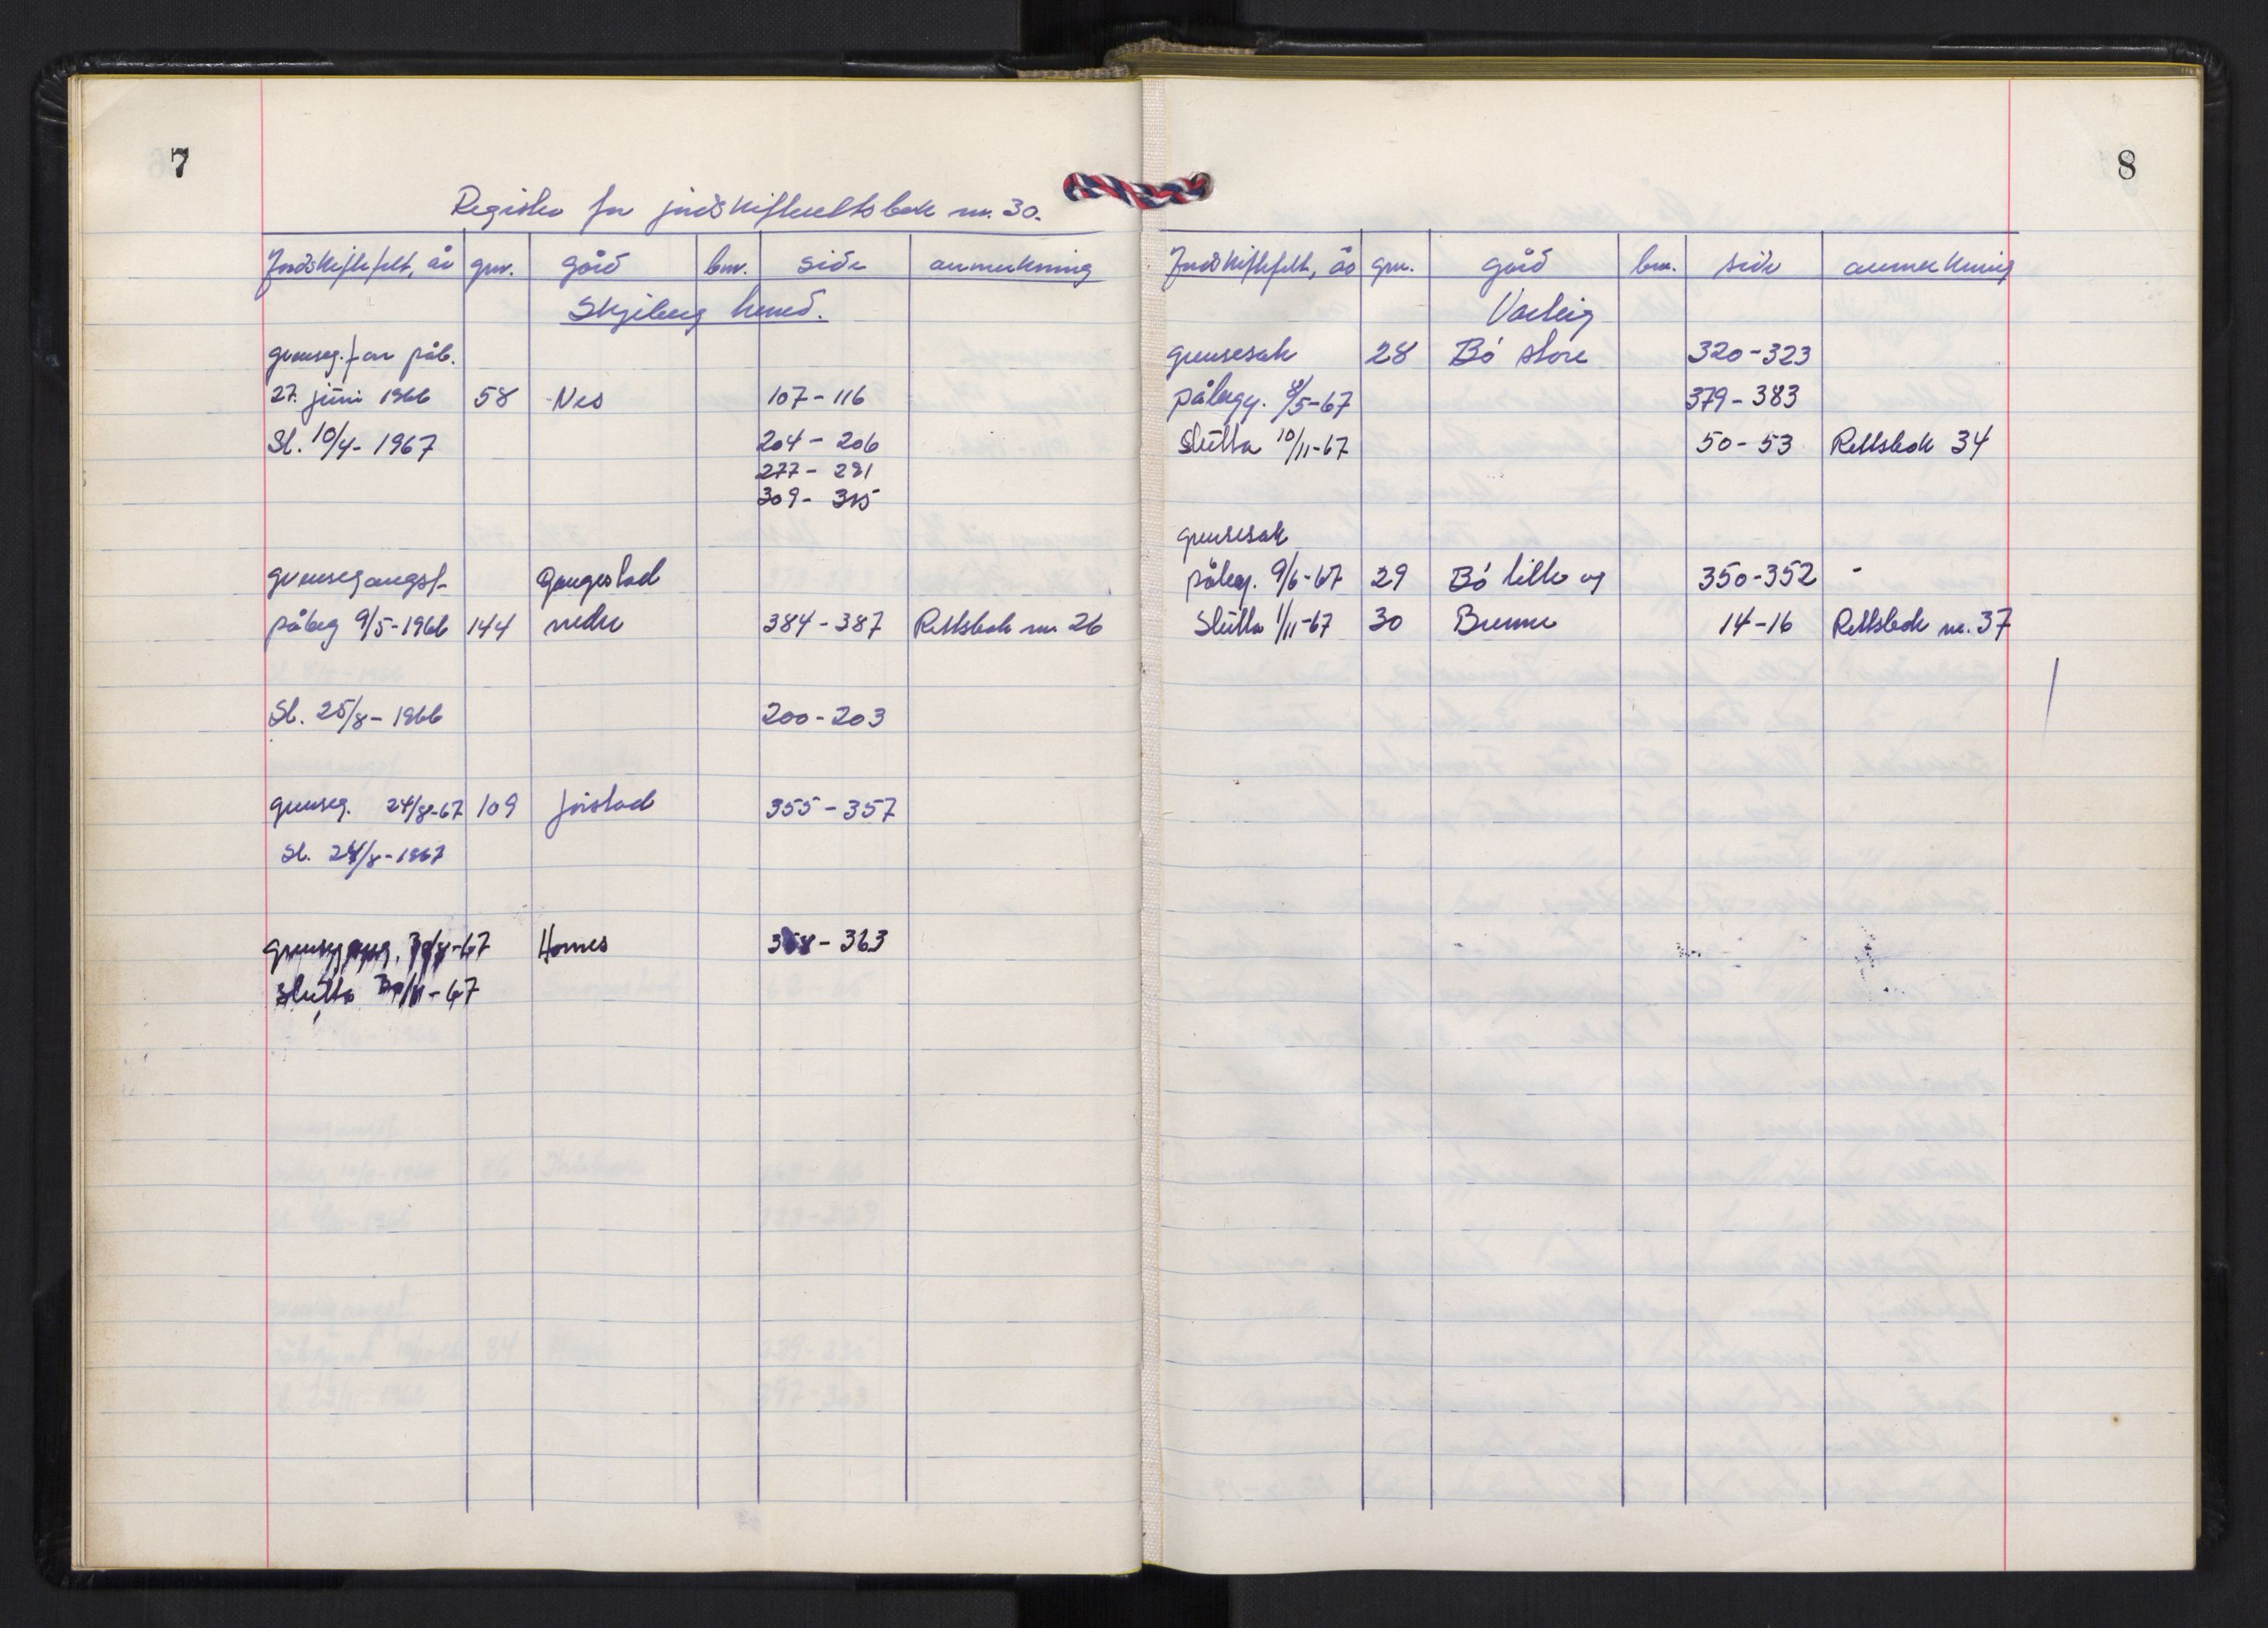 7
Register for jordskifterettsbok nr. 30.
Jordskiftefelt, år gnr. gård bnr. side anmerkning
Skjeberg herred.
grenseg.for påb.
27. juni 1966 58 Nes 107-116
Sl. 10/4-1967 204-206
277-281
309-315
grensegangsf. Gaugestad
påbeg 9/5-1966 144 nedre 384-387 Rettsbok nr 26
Sl. 25/8-1966 200-203
grenseg. 24/8-67 109 Jorstad 355-357
Sl. 24/8-1967
Hornes 358-363
slutta
8
Jordskiftefelt, år gnr. gård bnr. side anmerkning
Varteig
grensesak 28 Bø store 320-323
påbegy. 8/5-67 379-383
Slutta 10/11-67 50-53 Rettsbok 34
grensesak
påbeg. 9/6-67 29 Bø lille og 350-352 -
Slutta 1/11-67 30 Brenne 14-16 Rettsbok nr. 37